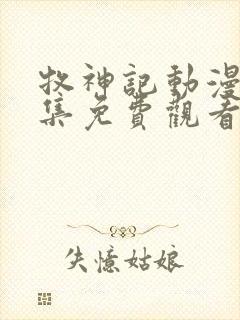 牧神記動漫
集免費觀看
失憶姑娘